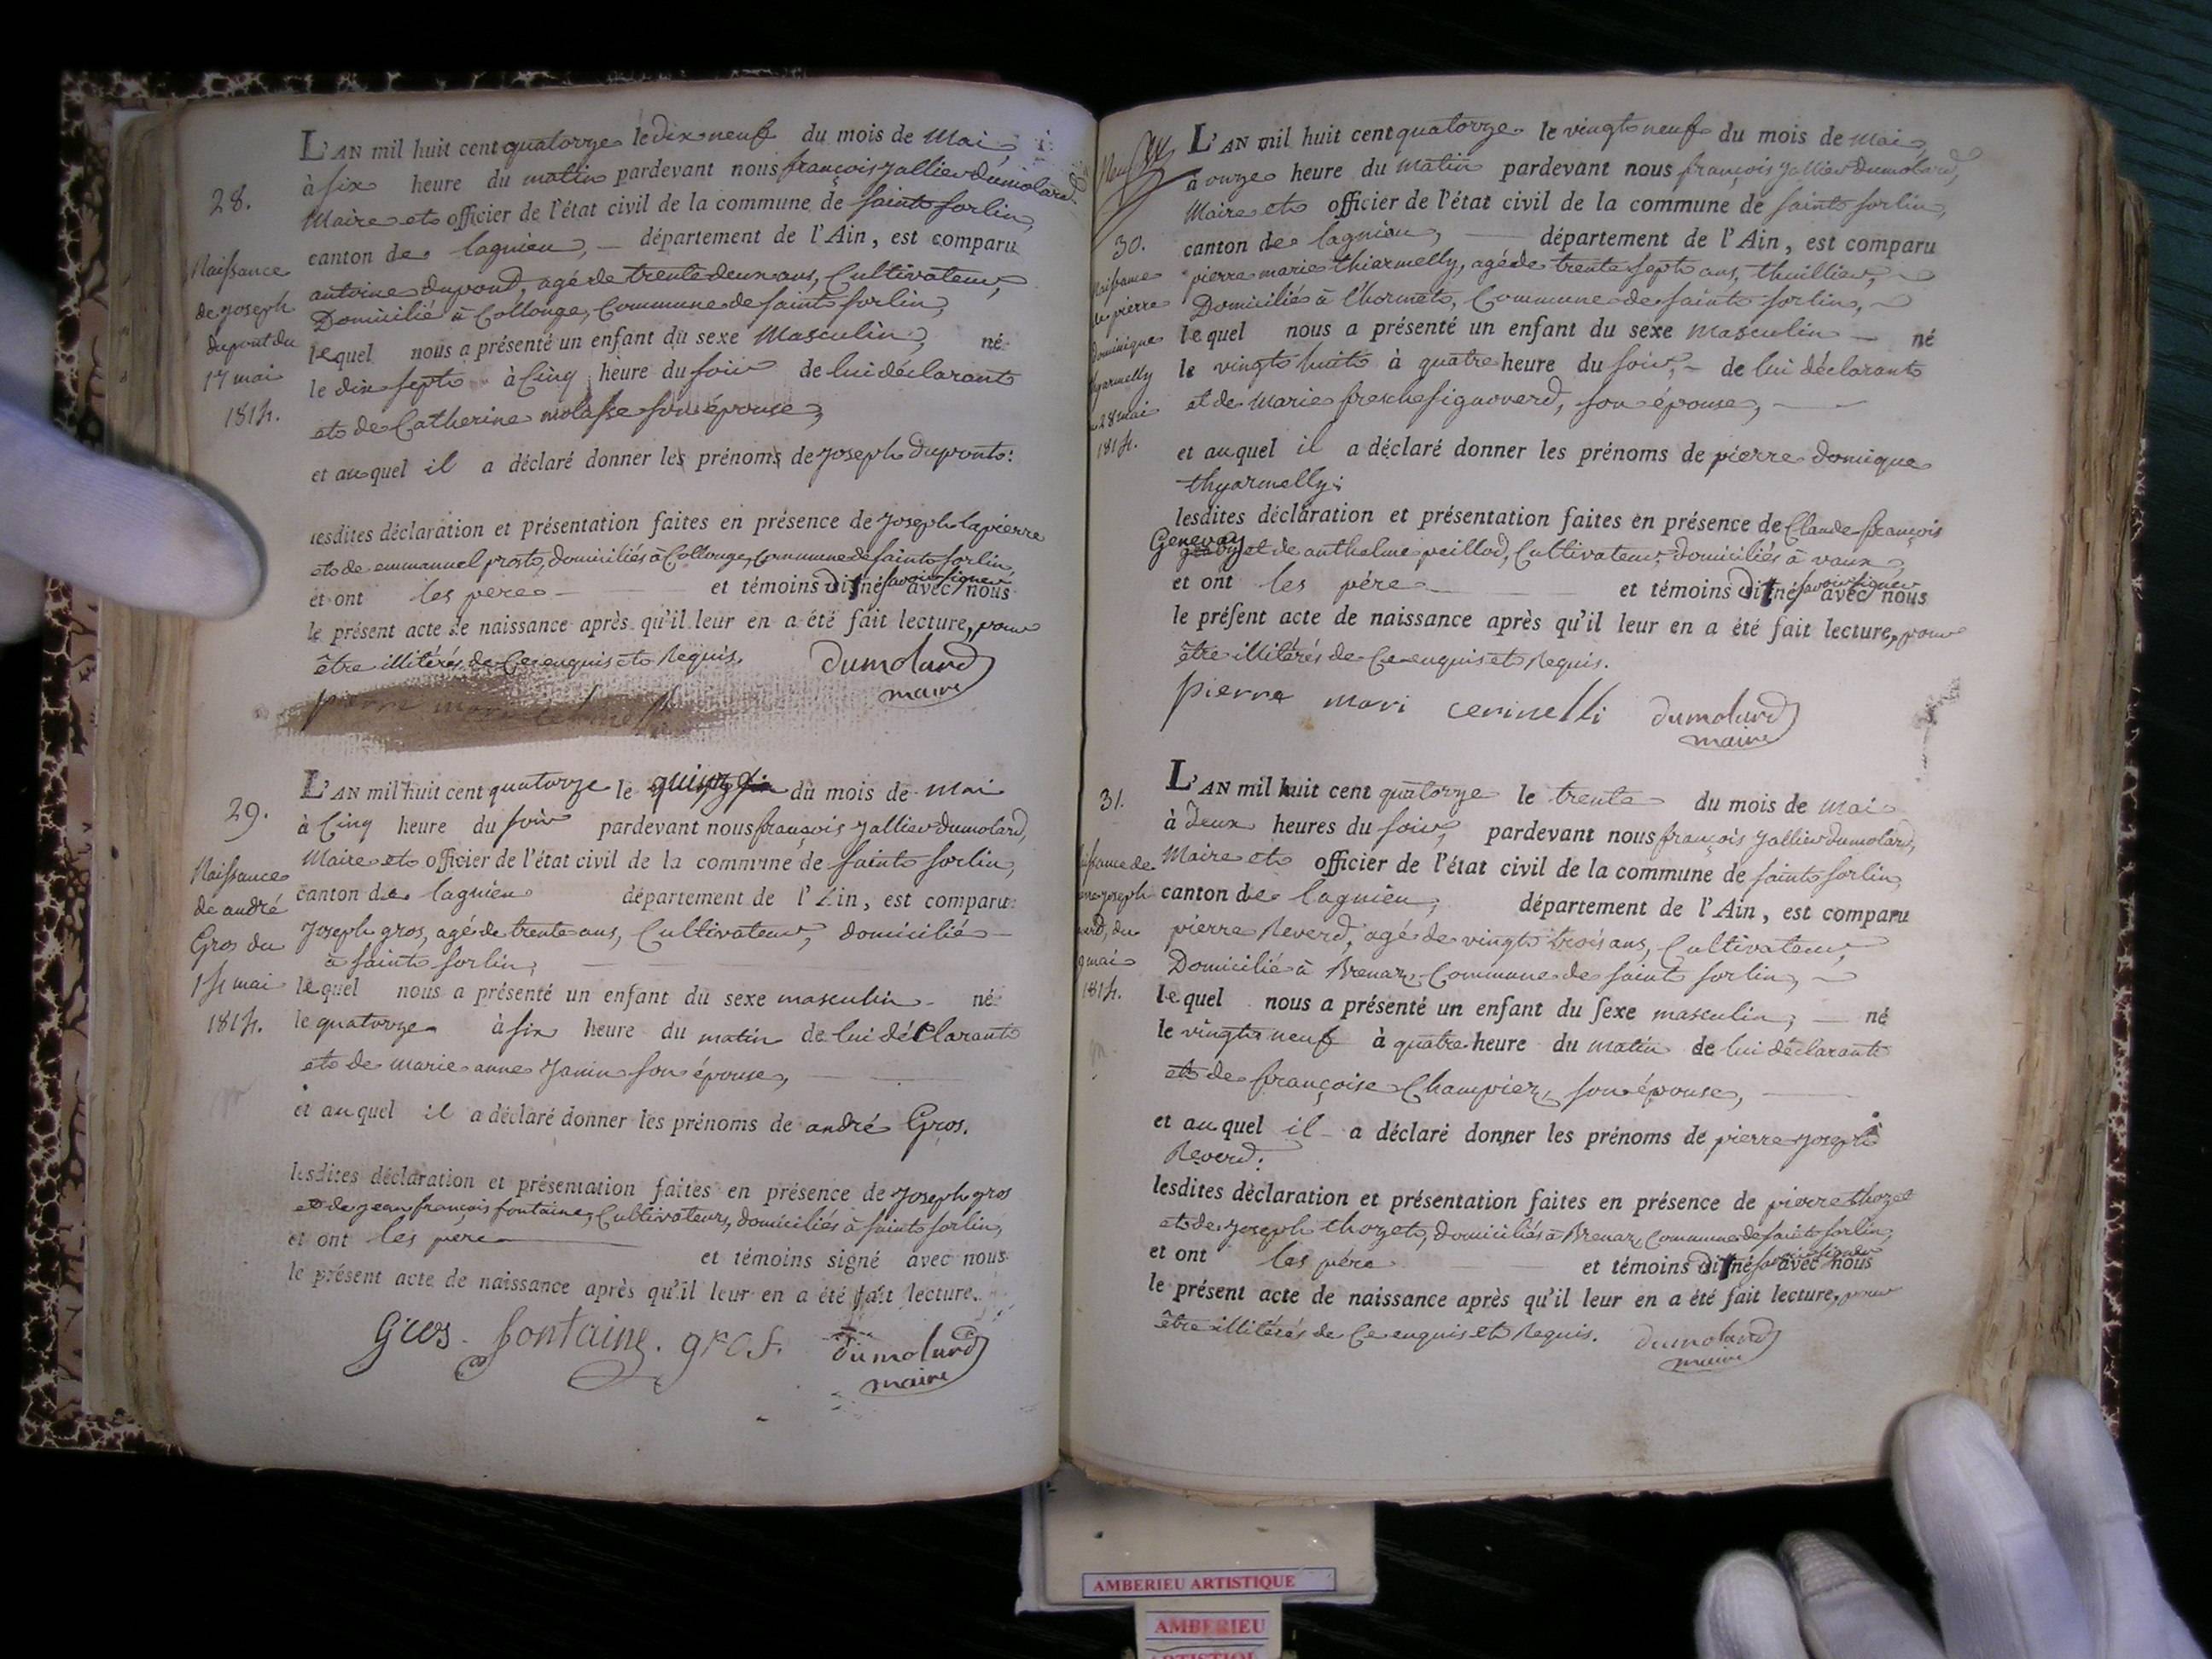 28.
Naissance
de joseph
dupont du
17 mai
1814.
L'AN mil huit cent quatorze le dix neuf du mois de Mai
à six heure du matin pardevant nous françois jallier dumolard,
Maire et officier de l'état civil de la commune de saint sorlin,
canton de lagnieu, département de l'Ain, est comparu
antoine dupond, agé de trente deux ans, Cultivateur,
Domicilié à Collonge, Commune de saint sorlin,
lequel nous a présenté un enfant du sexe Masculin, né
le dix sept à Cinq heure du soir de lui déclarant
et de Catherine molasse son épouse,
et auquel il a déclaré donner les prénoms de joseph dupont:
lesdites déclaration et présentation faites en présence de joseph lapierre
et de emmanuel prost, domiciliés à Collonge, Commune de saint sorlin,
et ont les pere et témoins dit né savoir signer avec nous
le présent acte de naissance après qu'il leur en a été fait lecture, pour
être illitérés de Ce enquis et Requis.
dumolard
maire
pierre mari
29.
Naissance
de andré
Gros du
14 mai
1814.
L'AN mil huit cent quatorze le quinze du mois de mai
à Cinq heure du soir pardevant nous françois jallier dumolard,
Maire et officier de l'état civil de la commune de saint sorlin,
canton de lagnieu département de l'Ain, est comparu
joseph gros, agé de trente ans, Cultivateur, domicilié
à saint sorlin,
lequel nous a présenté un enfant du sexe masculin né
le quatorze à six heure du matin de lui déclarant
et de marie anne janin son épouse,
et auquel il a déclaré donner les prénoms de andré Gros.
lesdites déclaration et présentation faites en présence de joseph gros
et de jean françois fontaine, Cultivateurs, domiciliés à saint sorlin,
et ont les pere et témoins signé avec nous
le présent acte de naissance après qu'il leur en a été fait lecture.
Gros fontaine. gros. dumolard
maire
30.
Naissance
de pierre
dominique
thyarmelly
28 mai
1814.
L'AN mil huit cent quatorze le vingt neuf du mois de mai,
à onze heure du matin pardevant nous françois jallier dumolard,
Maire et officier de l'état civil de la commune de saint sorlin,
canton de lagnieu, département de l'Ain, est comparu
pierre marie thiarmelly, agé de trente sept ans, thuillier,
Domicilié à l'hormet, Commune de saint sorlin,
lequel nous a présenté un enfant du sexe masculin né
le vingt huit à quatre heure du soir, de lui déclarant
et de Marie fresche signoverd, son épouse,
et auquel il a déclaré donner les prénoms de pierre domique
thyarmelly;
lesdites déclaration et présentation faites en présence de Claude françois
Genevay et de anthelme peillod, Cultivateur, domiciliés à vaux,
et ont les pére et témoins dit né savoir signer avec nous
le présent acte de naissance après qu'il leur en a été fait lecture, pour
être illitérés de Ce enquis et Requis.
pierre mari cerinelli dumolard
maire
31.
Naissance de
pierre joseph
Reverd, du
29 mai
1814.
L'AN mil huit cent quatorze le trente du mois de mai
à deux heures du soir, pardevant nous françois jallier dumolard,
Maire et officier de l'état civil de la commune de saint sorlin,
canton de lagnieu, département de l'Ain, est comparu
pierre Reverd, agé de vingt trois ans, Cultivateur,
Domicilié à Brenaz, Commune de saint sorlin,
lequel nous a présenté un enfant du sexe masculin; né
le vingt neuf à quatre heure du matin de lui déclarant
et de françoise Champier, son épouse,
et auquel il a déclaré donner les prénoms de pierre joseph
Reverd:
lesdites déclaration et présentation faites en présence de pierre thozet
et de joseph thozet, domiciliés à Brenaz, Commune de saint sorlin,
et ont les pére et témoins dit né savoir signer avec nous
le présent acte de naissance après qu'il leur en a été fait lecture, pour
être illitérés de Ce enquis et Requis.
dumolard
maire
AMBERIEU ARTISTIQUE
AMBERIEU
ARTISTIQUE